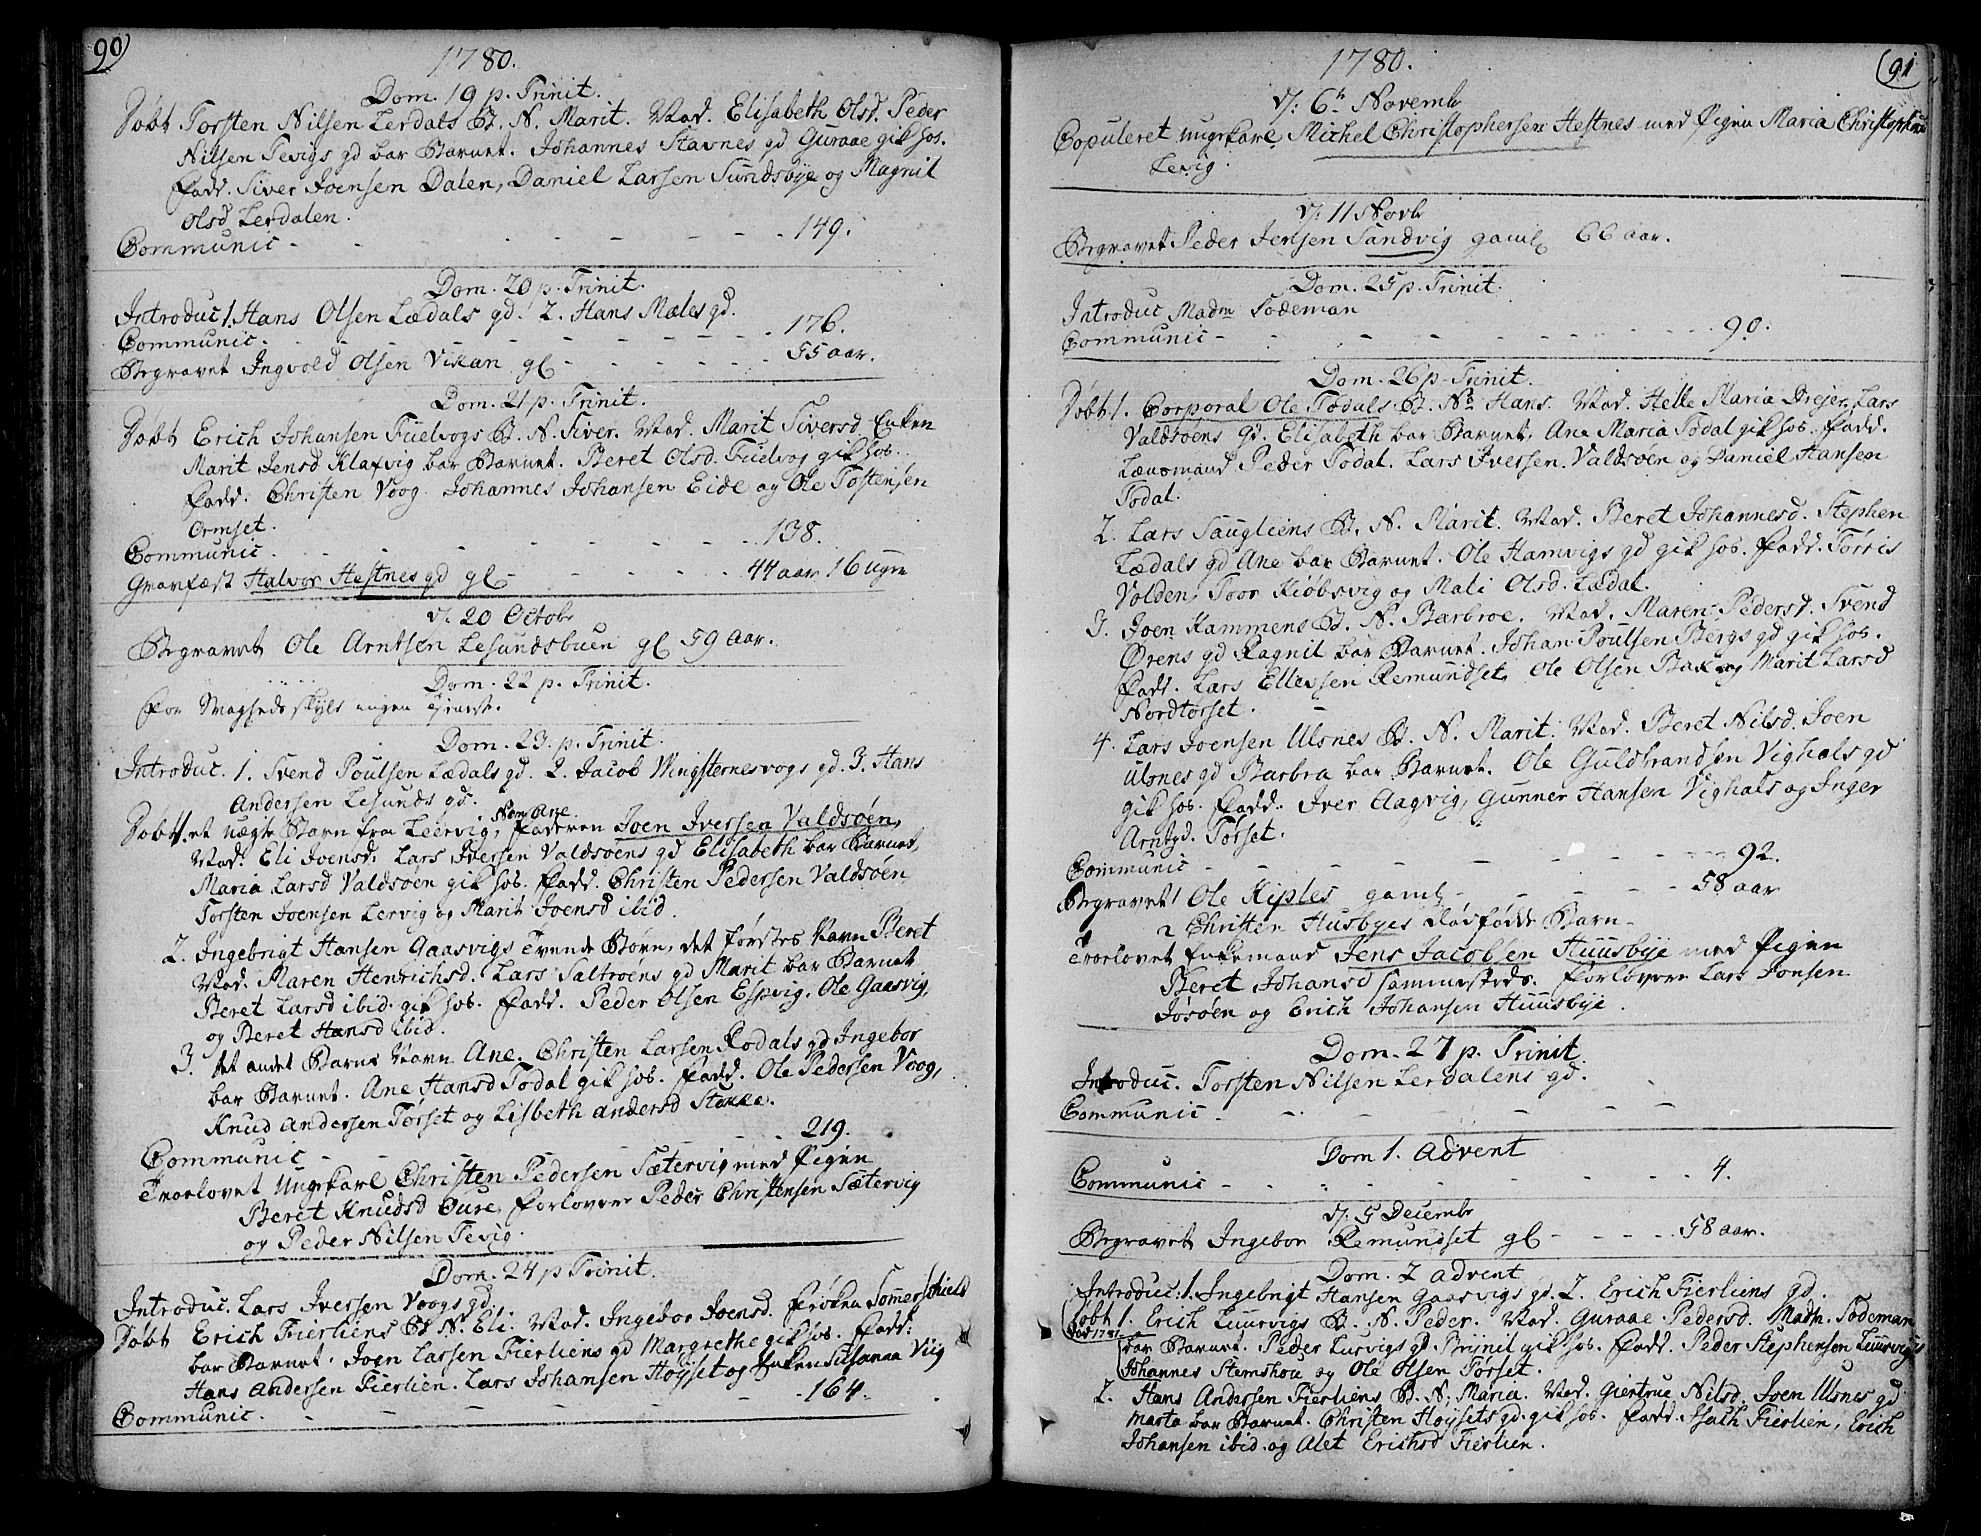 90
1780.
Dom. 19 p. Trinit.
Døbt Torsten Nilsen Lerdals B. N. Marit. Mod. Elisabeth Olsd. Peder
Nilsen Tevigs gd bar Barnet. Johannes Stavnes gd Guraae gik hos.
Fadd. Siver Joensen Dalen, Daniel Larsen Sundsbye og Magnil
Olsd Lerdalen.
Communic - - - - 149.
Dom. 20 p. Trinit.
Introduc 1. Hans Olsen Lædals gd. 2. Hans Mæles gd.
Communic. - - - - 176.
Begravet Ingvold Olsen Vikan gl - - - 55 aar.
Dom. 21 p. Trinit.
Døbt Erich Johansen Fuelvogs B. N. Siver. Mod. Marit Siversd Enken
Marit Jensd Klafvig bar Barnet. Beret Olsd. Fuelvog gik hos.
Fadd. Christen Voog. Johannes Johansen Eide og Ole Tostensen
Ormset.
Communic. - - - - 138.
Gravfæst Halvor Hestnes gd gl - - - 44 aar 16 uger
d. 20 Octobr
Begravet Ole Arntsen Lesundsbuen gl 59 Aar.
Dom. 22 p. Trinit.
For Svagheds skyld ingen Tjenest.
Dom. 23. p. Trinit.
Introduc. 1. Svend Poulsen Lædals gd. 2. Jacob Mingsternesvogs gd. 3. Hans
Andersen Lesunds gd.
Navn Ane.
Døbt 1. et uægte Barn fra Leervig, Faderen Joen Iversen Valdsøen,
Mod. Eli Joensd. Lars Iversen Valdsøens gd Elisabeth bar Barnet,
Maria Larsd Valdsøen gik hos. Fadd. Christen Pedersen Valdsøen
Torsten Joensen Lervig og Marit Joensd ibid.
2. Ingebrigt Hansen Gaasvigs Tvende Børn, det førstes Navn Beret
Mod. Maren Henrichsd. Lars Saltrøens gd Marit bar Barnet
Beret Larsd ibid. gik hos. Fadd. Peder Olsen Espvig, Ole Gaasvig,
og Beret Hansd ibid.
3. det andet Barns Navn Ane. Christen Larsen Rodals gd Ingebor
bar Barnet. Ane Hansd Todal gik hos. Fadd. Ole Pedersen Voog,
Knud Andersen Torset og Lisbeth Andersd Stokke.
Communic - - - - 219.
Trorlovet Ungekarl Christen Pedersen Sætervig med Pigen
Beret Knudsd Oure, Forlovere Peder Christensen Sætervig
og Peder Nilsen Tevig.
Dom. 24 p Trinit.
Introduc. Lars Iversen Voogs gd.
Døbt Erich Fierliens B N. Eli. Mod. Ingebor Joensd. Frøken Sommerschield
bar Barnet. Joen Larsen Fierliens gd Margrethe gik hos. Fadd.
Hans Andersen Fierlien. Lars Johansen Høyset og Enken Susanna Viig
Communic. - - - - 164.
91
1780.
d. 6t Novembr
Copuleret ungekarl Michel Christophersen Hestnes med Pigen Maria Christophersd
Levig.
d. 11 Novbr
Begravet Peder Jensen Sandvig gaml 66 aar.
Dom. 25 p. Trinit.
Introduc Madm Todeman
Communic - - - - 90.
Dom. 26 p. Trinit.
Døbt 1. Corporal Ole Todals B. N. Hans. Mod. Helle Maria Drejer. Lars
Valdsøens gd. Elisabeth bar Barnet, Ane Maria Todal gik hos. Fadd.
Lænsmand Peder Todal. Lars Iversen Valdsøen og Daniel Hansen
Todal.
2. Lars Saugliens B. N. Marit. Mod. Beret Johannesd. Stephen
Lædals gd Ane bar Barnet. Ole Hamvigs gd gik hos. Fadd. Torris
Volden, Toor Kiøbsvig og Mali Olsd. Lædal.
3. Joen Kammens B. N. Barbroe. Mod. Maren Pedersd. Svend
Ørens gd Ragnil bar Barnet. Johan Poulsen Bergs gd gik hos.
Fadd. Lars Ellevsen Remundset, Ole Olsen Bak og Marit Larsd
Nordtorset.
4. Lars Joensen Ulsnes B. N. Marit. Mod. Beret Nilsd. Joen
Ulsnes gd Barbra bar Barnet. Ole Guldbrandsen Vighals gd
gik hos. Fadd. Iver Aagvig, Gunner Hansen Vighals og Inger
Arntzd. Torset.
Communic - - - - 92.
Begravet 1 Ole Kiples gaml - - - 58 aar
2 Christen Husbyes dødfødde Barn -
Trorlovet Enkemand Jens Jacobsen Huusbye med Pigen
Beret Johansd sammesteds. Forlovere Lars Jonsen
Josøen og Erich Johansen Huusbye.
Dom. 27 p. Trinit.
Introduc. Torsten Nilsen Lerdalens gd.
Communic - - - -
Dom 1. Advent
Communic - - - - 4.
d. 5 Decembr
Begravet Ingebor Remundset gl - - - 58 aar.
Dom. 2 Advent
Introduc: 1. Ingebrigt Hansen Gaasvigs gd. 2. Erich Fierliens gd.
Døbt 1. Erich Luurvigs B. N. Peder. Mod. Guraae Pedersd. Madm. Todeman
bar Barnet. Peder Lurvigs gd Brynil gik hos. Fadd. Peder Stephensen Luurvigs
Johannes Stemshou og Ole Olsen Torset.
2. Hans Andersen Fierliens B. N. Maria. Mod. Giertrue Nilsd. Joen Ulsnes gd
Marta bar Barnet. Christen Høysets gd. gik hos. Fadd. Isach Fierlien, Erich
Johansen ibid. og Alet Erichsd Fierlien.